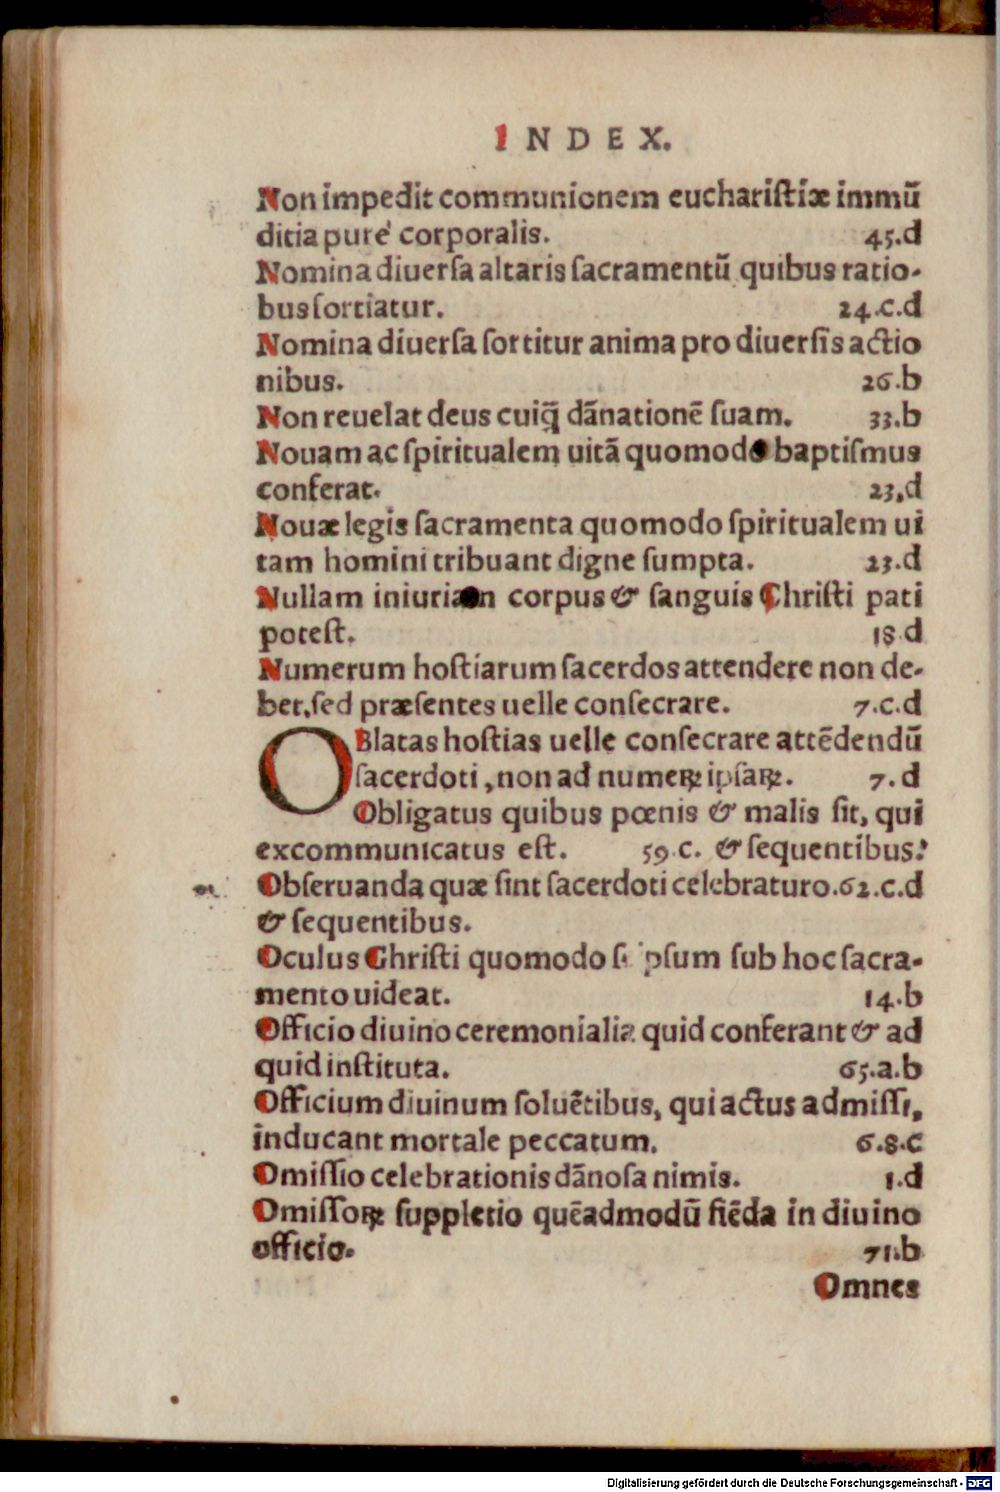 INDEX.
Non impedit communionem euchariſtiæ immũ
ditia pure' corporalis. 45.d
Nomina diuerſa altaris ſacramentũ quibus ratio-
bus ſortiatur. 24.c.d
Nomina diuerſa ſortitur anima pro diuerſis actio
nibus. 26.b
Non reuelat deus cuiq̃ dãnationẽ ſuam. 33.b
Nouam ac ſpiritualem uitã quomodo baptiſmus
conferat. 23,d
Nouæ legis ſacramenta quomodo ſpiritualem ui
tam homini tribuant digne ſumpta. 23.d
Nullam iniuriam corpus & ſanguis Chriſti pati
poteſt. 18 d
Numerum hoſtiarum ſacerdos attendere non de-
bet, ſed præſentes uelle conſecrare. 7.c.d
OBlatas hoſtias uelle conſecrare attẽdendũ
ſacerdoti, non ad numeꝝ ipſaꝝ. 7.d
Obligatus quibus pœnis & malis ſit, qui
excommunicatus eſt. 59.c. & ſequentibus.
Obſeruanda quæ ſint ſacerdoti celebraturo. 62.c.d
& ſequentibus.
Oculus Chriſti quomodo ſub hoc ſacra-
mento uideat. 14.b
Officio diuino ceremonialia quid conferant & ad
quid inſtituta. 65.a.b
Officium diuinum ſoluẽtibus, qui actus admiſſi,
inducant mortale peccatum. 6.8.c
Omiſſio celebrationis dãnoſa nimis. 1.d
Omiſſoꝝ ſuppletio quẽadmodũ fiẽda in diuino
officio. 71.b
Omnes
Digitalisierung gefördert durch die Deutsche Forschungsgemeinschaft - DFG